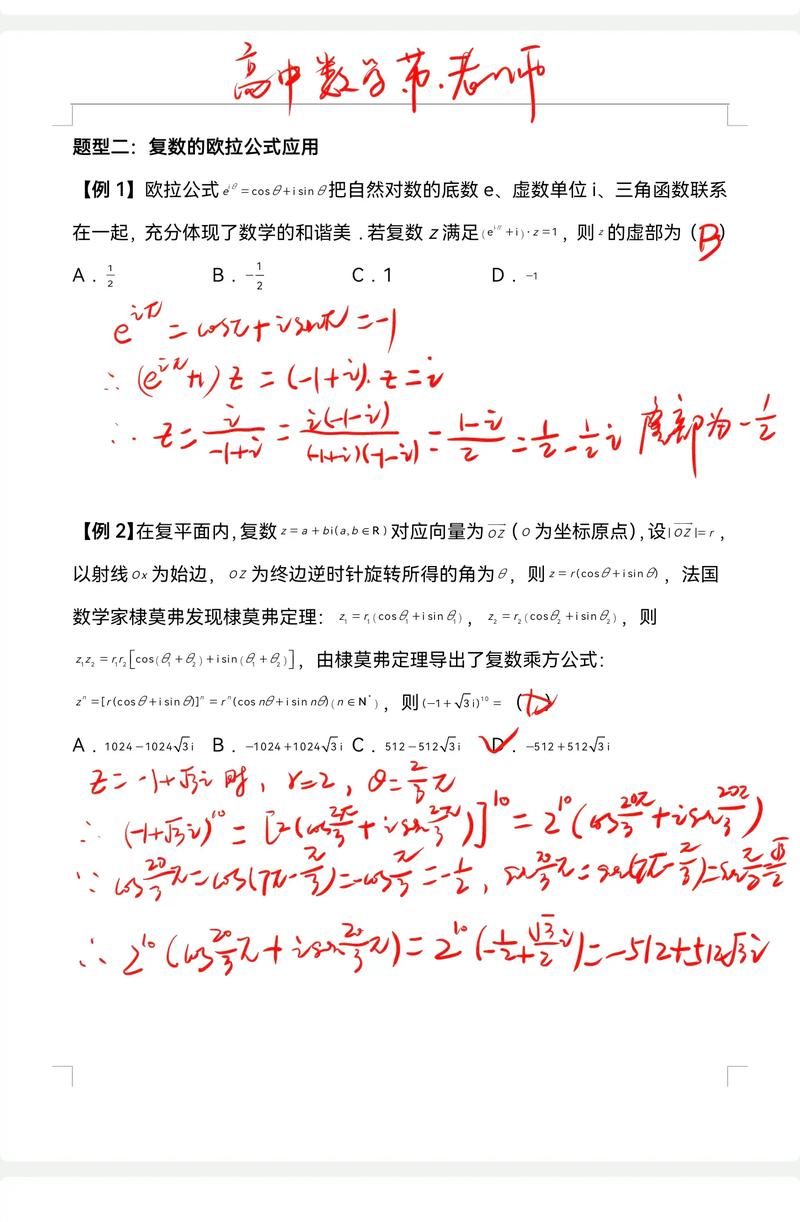 高中数学第.老师
题型二：复数的欧拉公式应用
【例 1】欧拉公式 e^{iθ} = cosθ + i sinθ 把自然对数的底数 e、虚数单位 i、三角函数联系
在一起，充分体现了数学的和谐美 . 若复数 z 满足 (e^{iπ} + i)·z = 1 ，则 z 的虚部为（B）
A . 1/2 B . -1/2 C . 1 D . -1
e^{iπ} = cosπ + i sinπ = -1
∴ (e^{iπ}+i) z = (-1+i). z = i
∴ z = i/(-1+i) = i(-1-i)/((-1+i)(-1-i)) = (1-i)/2 = 1/2 - 1/2 i 虚部为 -1/2
【例 2】在复平面内，复数 z = a + bi(a, b ∈ R) 对应向量为 OZ（O 为坐标原点），设 |OZ| = r ，
以射线 Ox 为始边， OZ 为终边逆时针旋转所得的角为 θ，则 z = r(cosθ + i sinθ) ，法国
数学家棣莫弗发现棣莫弗定理： z₁ = r₁(cosθ₁ + i sinθ₁) ， z₂ = r₂(cosθ₂ + i sinθ₂) ，则
z₁z₂ = r₁r₂[cos(θ₁ + θ₂) + i sin(θ₁ + θ₂)] ，由棣莫弗定理导出了复数乘方公式：
zⁿ = [r(cosθ + i sinθ)]ⁿ = rⁿ(cos nθ + i sin nθ)(n ∈ N*) ，则 (-1 + √3 i)¹⁰ = （D）
A . 1024 - 1024√3 i B . -1024 + 1024√3 i C . 512 - 512√3 i D . -512 + 512√3 i
z = -1+√3i 时, r=2, θ=2/3 π
∴ (-1+√3i)¹⁰ = [2(cos 2π/3 + i sin 2π/3)]¹⁰ = 2¹⁰(cos 20π/3 + i sin 20π/3)
∵ cos 20/3 π = cos(7π - π/3) = -cos π/3 = -1/2, sin 20/3 π = sin(7π - π/3) = sin π/3 = √3/2
∴ 2¹⁰(cos 20/3 π + i sin 20/3 π) = 2¹⁰(-1/2 + √3/2 i) = -512+512√3i